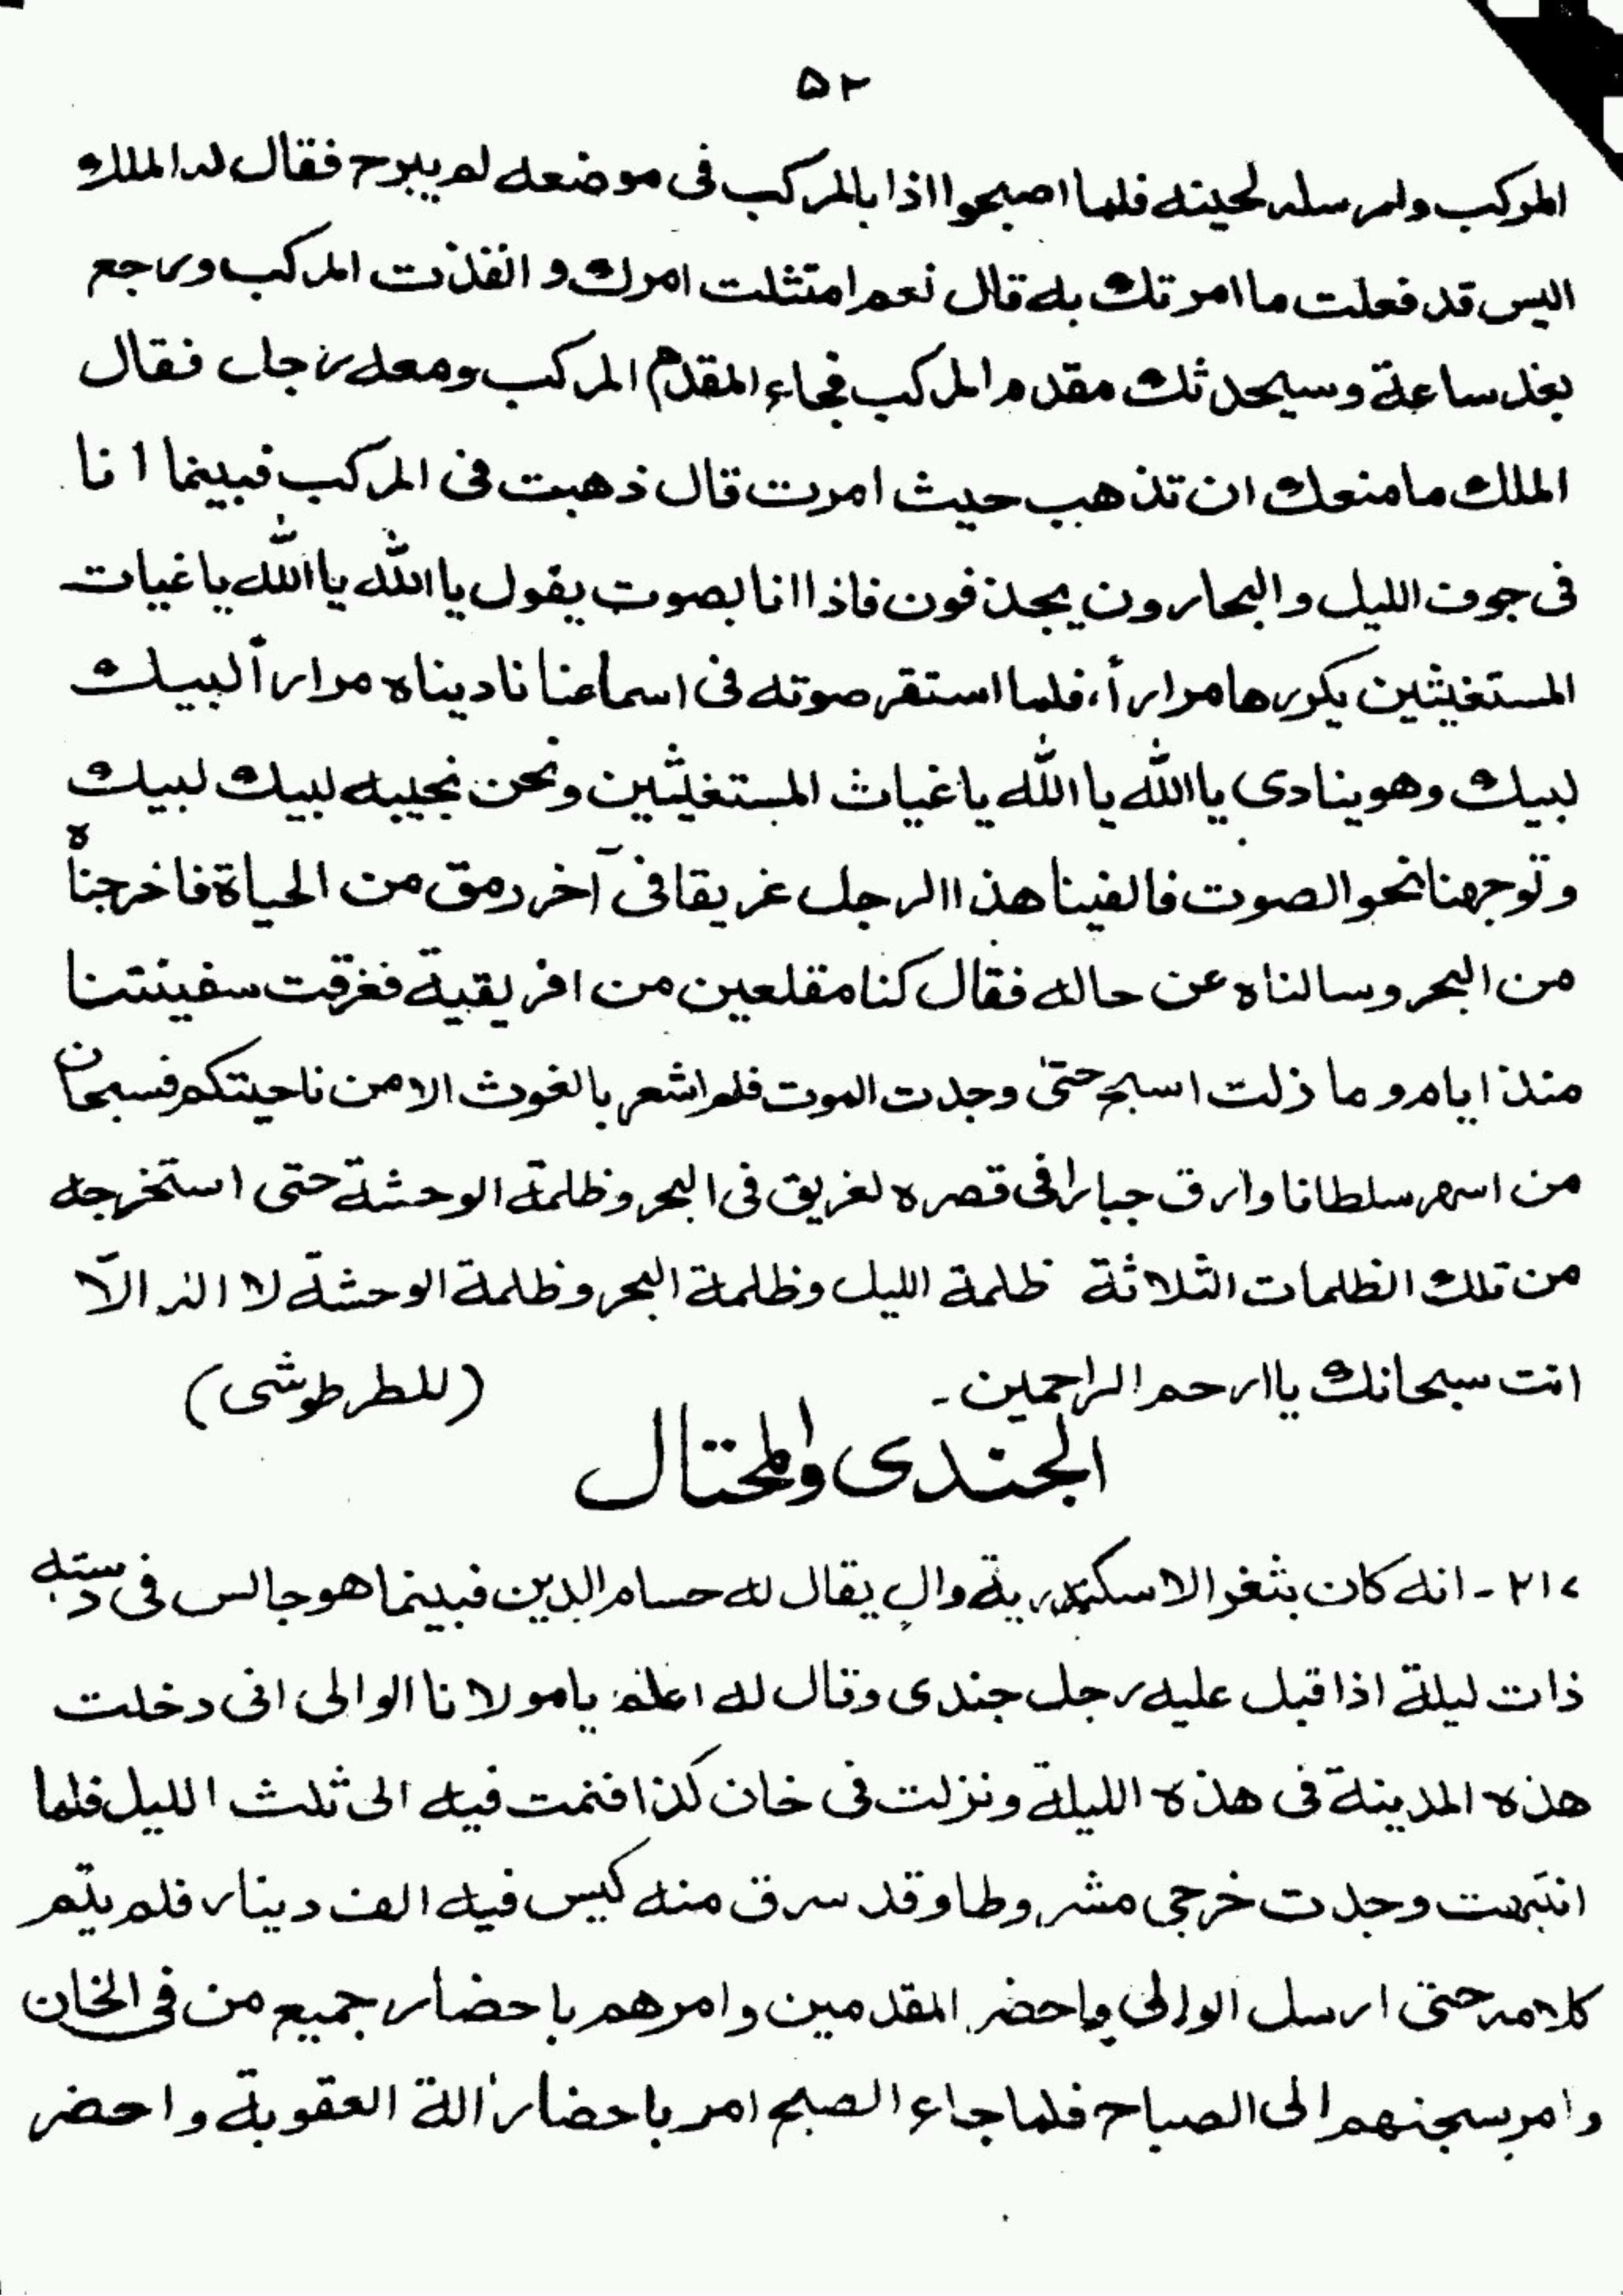 ۵۲
المركب وارسله لحينه فلما اصبحوا اذا بالمركب فى موضعه لم يبرح فقال له الملك
اليس قد فعلت ما امرتك به قال نعم امتثلت امرك و انفذت المركب ورجع
بغد ساعة وسيحدثك مقدم المركب فجاء المقدم المركب ومعه رجل فقال
الملك ما منعك ان تذهب حيث امرت قال ذهبت فى المركب فبينما انا
فى جوف الليل والبحارون يجذفون فاذا انا بصوت يقول يا الله يا الله يا غيات
المستغيثين يكررها مراراً، فلما استقر صوته فى اسماعنا ناديناه مراراً لبيك
لبيك وهو ينادى يا الله يا الله يا غياث المستغيثين ونحن نجيبه لبيك لبيك
وتوجهنا نحو الصوت فالفينا هذا الرجل غريقا فى آخر رمق من الحياة فاخرجناه
من البحر وسالناه عن حاله فقال كنا مقلعين من افريقية فغرقت سفينتنا
منذ ايام و ما ذلت اسبح حتىٰ وجدت الموت فلم اشعر بالغوث الا من ناحيتكم فسبحان
من اسهر سلطانا وارق جبارا فى قصره لغريق فى البحر وظلمة الوحشة حتى استخرجه
من تلك الظلمات الثلاثة ظلمة الليل وظلمة البحر وظلمة الوحشة لا اله الّا
انت سبحانك يا ارحم الراحمين۔ (للطرطوشى)
الجندى والمحتال
۲۱۷ - انه كان بثغر الاسكندرية والٍ يقال له حسام الدين فبينما هو جالس فى دسته
ذات ليلة اذ اقبل عليه رجل جندى وقال له اعلم يا مولانا الوالى انى دخلت
هذه المدينة فى هذه الليلة ونزلت فى خان كذا فنمت فيه الى ثلث الليل فلما
انتبهت وجدت خرجى مشروطا وقد سرق منه كيس فيه الف دينار فلم يتم
كلامه حتى ارسل الوالى واحضر المقدمين وامرهم باحضار جميع من فى الخان
وامر بسجنهم الى الصباح فلما جاء الصبح امر باحضار الة العقوبة واحضر